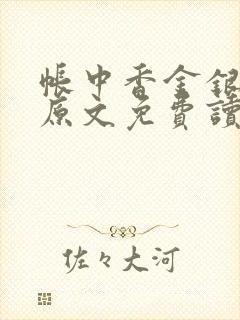 帳中香金銀
原文免費讀
佐々大河